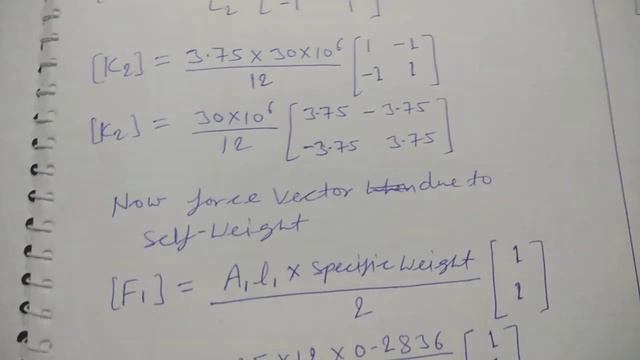 L2 [-1 1]
[K2] = 3.75 × 30×10^6 / 12 [1 -1
-1 1]
[K2] = 30×10^6 / 12 [3.75 -3.75
-3.75 3.75]
Now force Vector due to
Self-Weight
[F1] = A1 l1 × Specific Weight / 2 [1
1]
5×12 × 0.2836 [1